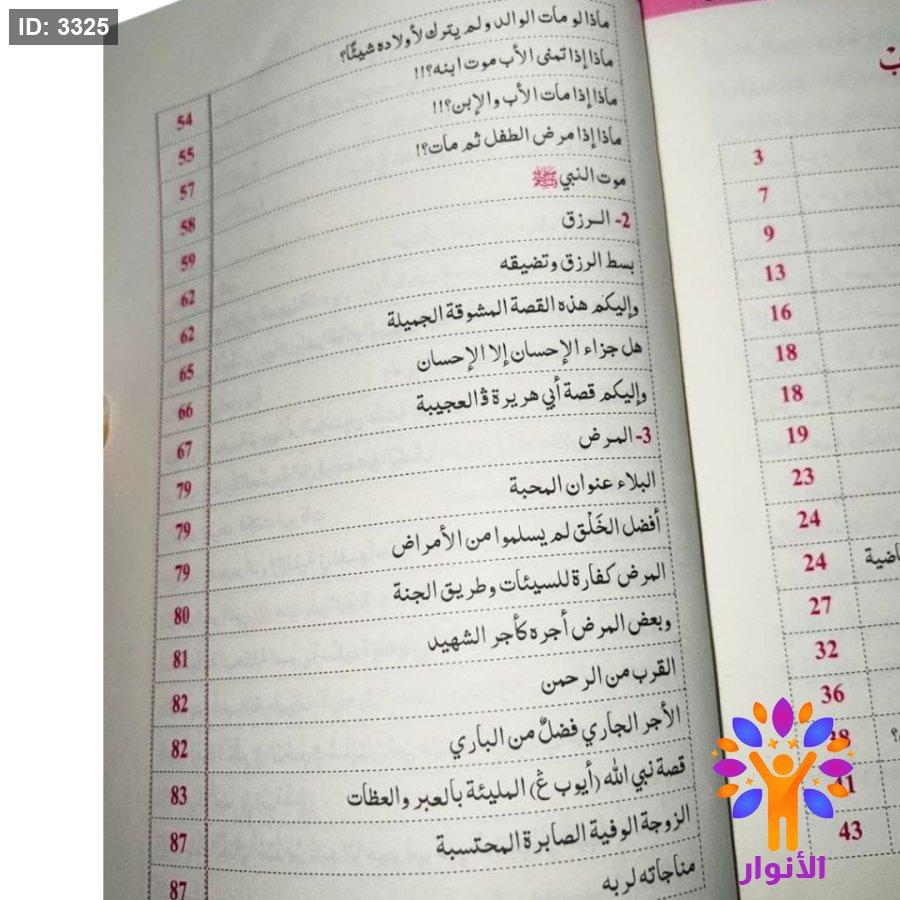 ID: 3325
ماذا لو مات الوالد ولم يترك لأولاده شيئًا؟ 54
ماذا إذا تمنى الأب موت ابنه؟!! 55
ماذا إذا مات الأب والإبن؟!! 57
ماذا إذا مرض الطفل ثم مات؟! 58
موت النبي ﷺ 59
2- الـرزق 62
بسط الرزق وتضيقه 62
وإليكم هذه القصة المشوقة الجميلة 65
هل جزاء الإحسان إلا الإحسان 66
وإليكم قصة أبي هريرة ڤ العجيبة 67
3- المـرض 79
البلاء عنوان المحبة 79
أفضل الخَلْق لم يسلموا من الأمراض 79
المرض كفارة للسيئات وطريق الجنة 80
وبعض المرض أجره كأجر الشهيد 81
القرب من الرحمن 82
الأجر الجاري فضلٌ من الباري 82
قصة نبي الله (أيوب غ) المليئة بالعبر والعظات 83
الزوجة الوفية الصابرة المحتسبة 87
مناجاته لربه 87
3
7
9
13
16
18
18
19
23
24
24
27
32
36
38
41
43
الأنوار